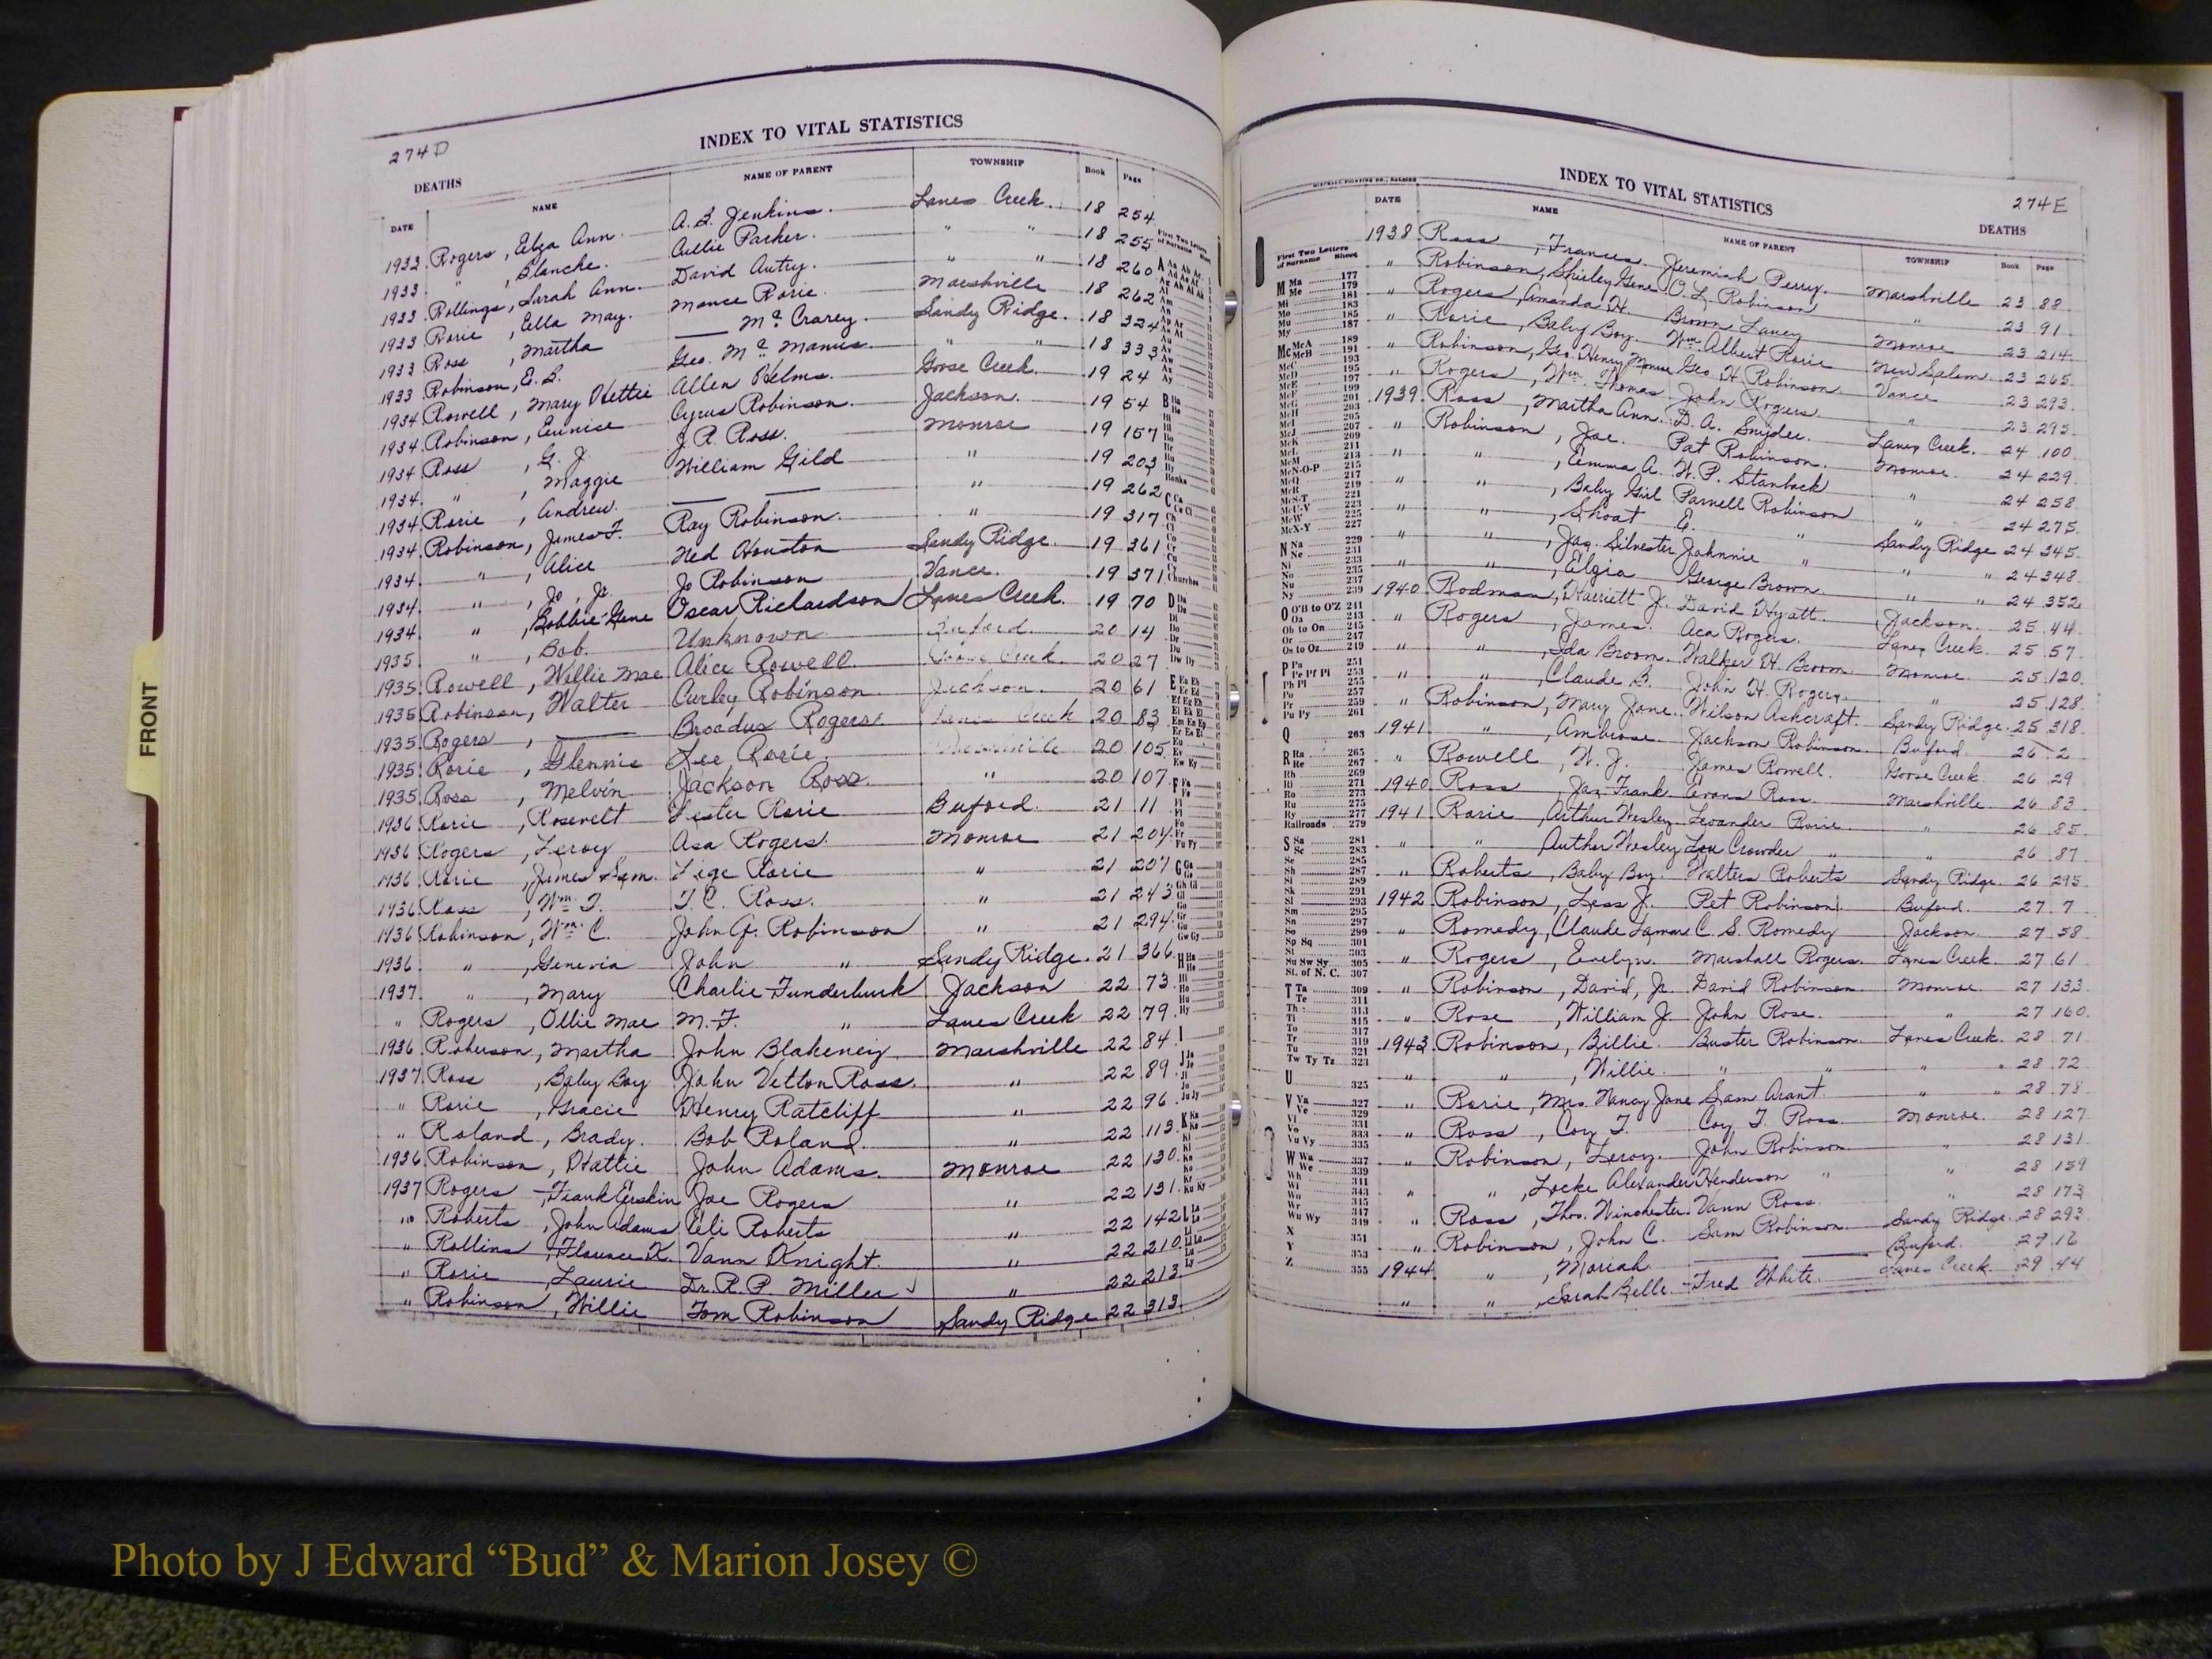 274D
INDEX TO VITAL STATISTICS
DEATHS
DATE NAME NAME OF PARENT TOWNSHIP Book Page
1933 Rogers, Eliza Ann. A. B. Jenkins. Lanes Creek. 18 254
1933 " , Blanche. Cullie Parker. " " 18 255
1933 Rollings, Sarah Ann. David Autry. " " 18 260
1933 Rorie, Ella May. Mance Rorie. Marshville 18 262
1933 Ross, Martha —— McCrarey. Sandy Ridge. 18 324
1933 Robinson, E. B. Geo. McManus. " " 18 333
1934 Rowell, Mary Hettie Allen Helms. Goose Creek. 19 24
1934 Robinson, Eunice Cyrus Robinson. Jackson. 19 54
1934 Ross, G. J. J. R. Ross. Monroe 19 157
1934 " , Maggie William Gild " 19 203
1934 Rorie, Andrew. —— —— " 19 262
1934 Robinson, James F. Ray Robinson. " 19 317
1934 " , Alice Ned Houston Sandy Ridge. 19 361
1934 " , Jo, Jr. Jo Robinson Vance. 19 371
1934 " , Bobbie Gene Oscar Richardson Lanes Creek. 19 70
1935 " , Bob. Unknown Buford. 20 14
1935 Rowell, Willie Mae Alice Rowell. Goose Creek. 20 27
1935 Robinson, Walter Curley Robinson Jackson. 20 61
1935 Rogers, —— Broadus Rogers. Lanes Creek 20 83
1935 Rorie, Glennie Lee Rorie. Marshville 20 105
1935 Ross, Melvin Jackson Ross. " 20 107
1936 Rorie, Rosevelt Lester Rorie Buford. 21 11
1936 Rogers, Leroy Asa Rogers. Monroe 21 204
1936 Rorie, James Sam. Lige Rorie " 21 207
1936 Ross, Wm. T. T. C. Ross. " 21 243
1936 Robinson, Wm. C. John G. Robinson " 21 294
1936 " , Genevia John " Sandy Ridge. 21 366
1937 " , Mary Charlie Funderburk Jackson 22 73
" Rogers, Ollie Mae M. F. " Lanes Creek 22 79
1936 Roberson, Martha John Blakeney Marshville 22 84
1937 Ross, Baby Boy John Vetton Ross. " 22 89
" Rorie, Gracie Henry Ratcliff " 22 96
" Roland, Brady. Bob Roland. " 22 113
1936 Robinson, Hattie John Adams. Monroe 22 130
1937 Rogers, Frank Erskin Joe Rogers " 22 131
" Roberts, John Adams Eli Roberts " 22 142
" Rollins, Florence K. Vann Knight. " 22 210
" Rorie, Laurie Dr. R. P. Miller " 22 213
" Robinson, Willie Tom Robinson Sandy Ridge 22 313
INDEX TO VITAL STATISTICS
274E
DEATHS
DATE NAME NAME OF PARENT TOWNSHIP Book Page
First Two Letters of Surname Sheet
1938 Ross, Frances. Jeremiah Perry. Marshville 23 88
" Robinson, Shirley Gene O. L. Robinson " 23 91
" Rogers, Amanda H. Brown Laney Monroe 23 214
" Rorie, Baby Boy. Wm. Albert Rorie New Salem. 23 265
" Robinson, Geo. Henry Monroe Geo. H. Robinson Vance 23 293
" Rogers, Wm. Thomas John Rogers. " 23 295
1939 Ross, Martha Ann. D. A. Snyder. Lanes Creek. 24 100
" Robinson, Joe. Pat Robinson. Monroe. 24 229
" " , Emma A. W. P. Stanback " 24 258
" " , Baby Girl Parnell Robinson " 24 275
" " , Shoat E. " Sandy Ridge 24 345
" " , Jas. Silvester Johnnie " " " 24 348
" " , Elgia George Brown. " " 24 352
1940 Rodman, Harriett J. David Hyatt. Jackson. 25 44
" Rogers, James. Aca Rogers. Lanes Creek. 25 57
" " , Ida Broom. Walker H. Broom. Monroe. 25 120
" " , Claude B. John H. Rogers. " 25 128
" Robinson, Mary Jane. Wilson Ashcraft. Sandy Ridge. 25 318
1941 " , Ambrose. Jackson Robinson. Buford. 26 2
" Rowell, W. J. James Rowell. Goose Creek. 26 29
1940 Ross, Jas. Frank. Evans Ross. Marshville. 26 83
1941 Rorie, Arthur Wesley. Leander Rorie. " 26 85
" " Author Wesley Lou Crowder " " 26 87
" Roberts, Baby Boy. Walters Roberts Sandy Ridge. 26 295
1942 Robinson, Less J. Pet Robinson. Buford. 27 7
" Romedy, Claude Lamar C. S. Romedy Jackson. 27 58
" Rogers, Evelyn. Marshall Rogers. Lanes Creek 27 61
" Robinson, David, Jr. David Robinson. Monroe. 27 133
" Rose, William J. John Rose. " 27 160
1943 Robinson, Billie. Buster Robinson. Lanes Creek. 28 71
" " , Willie. " " " " 28 72
" Rorie, Mrs. Nancy Jane Sam Arant. " " 28 78
" Ross, Coy T. Coy T. Ross. Monroe. 28 127
" Robinson, Leroy. John Robinson. " 28 131
" " , Locke Alexander Henderson " " 28 159
" Ross, Thos. Winchester. Vann Ross. " 28 173
" Robinson, John C. Sam Robinson. Sandy Ridge. 28 293
1944 " , Moriah —— —— Buford. 29 16
" " , Sarah Belle. Fred White. Lanes Creek. 29 44
FRONT
Photo by J Edward “Bud” & Marion Josey ©